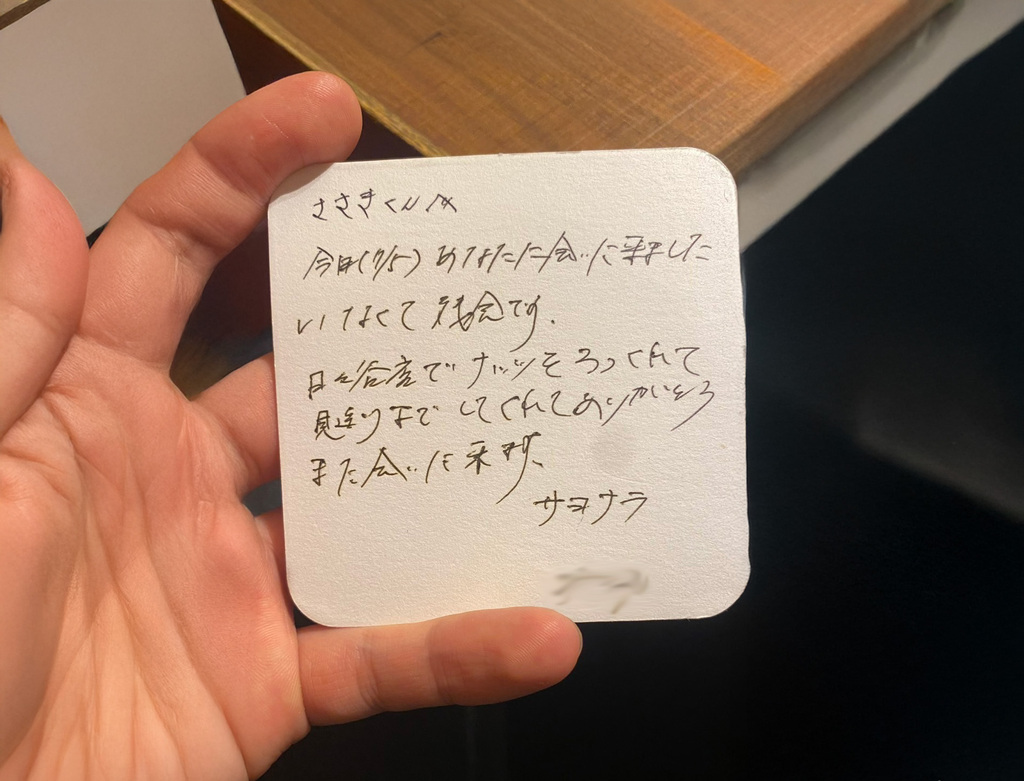 ささきくんへ
今日(7/5) あなたに会いに来ました
いなくて残念です.
日比谷店でナッツそろってくれて
見送りまでしてくれてありがとう
また会いに来ます、
サヨナラ